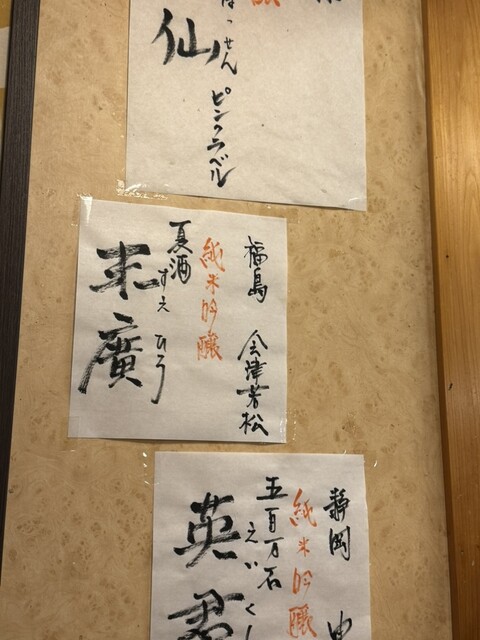 仙
っせん
ピンクラベル
福島 会津若松
純米吟醸
夏酒
すえ ひろ
末廣
静岡
純米吟醸
五百万石
えいくん
英君